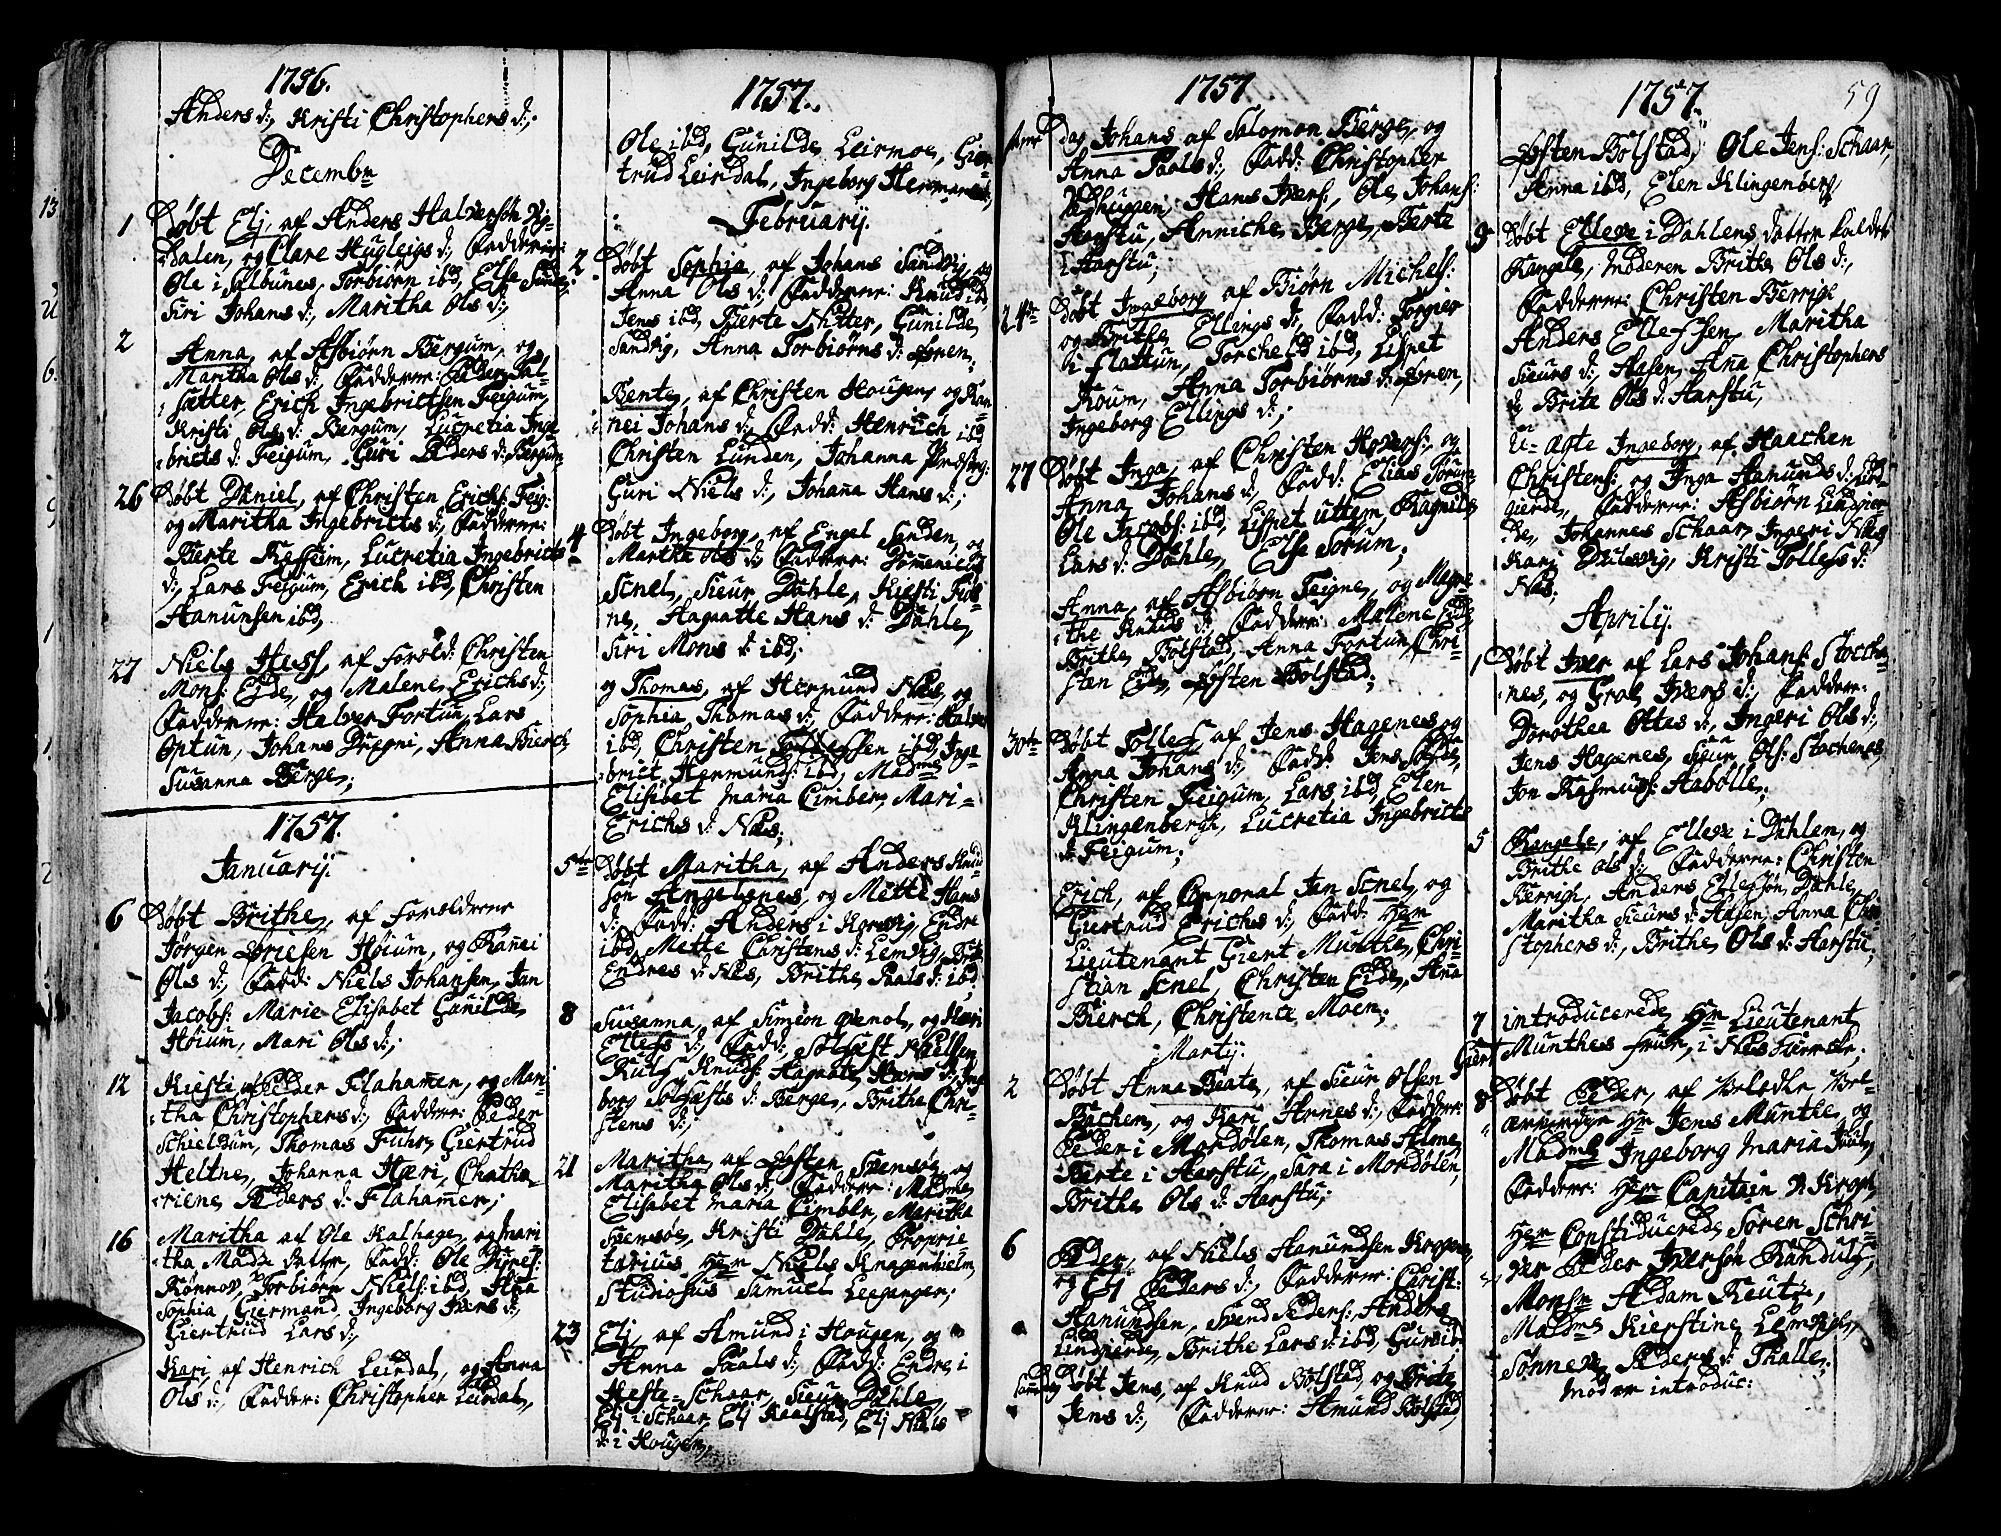 1756.
Anders d:, Kristi Christophers d:,
Decembr
1 Døbt Elj, af Anders Halverson
Dalen, og Clare Hugleigs d:, Fadderne:
Ole i Ælbunes, Torbiørn ibd, Else
Siri Johans d:, Maritha Ols d:,
2
Anna, af Asbiørn Bergum, og
Maritha Ols d:, Fadderne: Peder Sal=
sætter, Erich Ingebrictsen Feigum,
Kristi Ols d: Bergum, Lucretia Inge
bricts d: Feigum, Guri Peders d: Bergum
26 Døbt Daniel, af Christen Erichs: Feig:
og Maritha Ingebricts d:, Fadderne:
Bierte Refheim, Lucretia Ingebricts
d:, Lars Feigum, Erich ibd, Christen
Aanunsen ibd,
27 Niels Hess, af Forold: Christen
Mons: Eide, og Malene Erichs d:,
Fadderne: Halver Fortun, Lars
Optun, Johans Duegni, Anna Bierch
Susanna Berge;
1757.
Januarij.
6 Døbt Brithe, af Foroldrene
Jørgen Høium, og Rannei
Ols d:, Fadd: Niels Johansen, Jan
Jacobs: Marie Elisabet Gunilde
Høium, Mari Ols d:,
12 Kiesti af Peder Flahamer, og Mari
tha Christophers d:, Fadder: Peder
Schieldum, Thomas Fuhr, Giertrud
Heltne, Johanna Hæri, Chatha=
rine Peders d: Flahamer;
16 Maritha af Ole Kalhage, og mari
tha Mads datter, Fadd: Ole
Rønnov Torbiørn Niels: ibd, Anna
Sophia Giermand, Ingeborg Ivers d:,
Giertrud Lars d:,
Kari af Henrich Leirdal, og Anna
Ols d:, Fadder: Christopher Leirdal,
1757.
Ole ibd, Gunilde Leirmoe, Gier=
trud Leirdal, Ingeborg
Februarij.
2 Døbt Sophia, af Johans Sandvig, og
Anna Ols d:, Fadderne: Knud ibd
Jens ibd, Bierte Nitter, Gunilde
Sandvig, Anna Torbiørns d: Øren,
Bente, af Christen Hougen, og Ran=
nei Johans d:, Fadd: Henrich ibd
Christen Lunden, Johanna
Guri Niels d:, Johana Hans d:;
4 Døbt Ingeborg, af Engel Sanden, og
Martha Ols d: Fadderne: Domenicus
Scnel, Sieur Dahle, Kiesti Fuß=
ne, Aagaatte Hans d: Dahle,
Siri Mons d: ibd;
og Thomas, af Hermund Næs, og
Sophia Thomas d:, Faddere: Halver
ibd, Christen Tollefsen ibd, Inge=
brict Hermunds: ibd, Madme
Elisibet maria Cimber, Mari=
Erichs d: Næs;
5te Døbt Maritha, af Anders Knud
Søn Angelsnes, og Mette Hans
d:, Fadd: Anders i Korsvig, Endre
ibd, Mette Christens d: Lemvig, Brite
Endres d: Næs, Brithe Paals d: ibd,
8 Susanna, af Simeon Venol, og Kari
Ellefs d:, Fadd: Solfast Nielsen
Ruly Knuds: Aagaate Hans d: Inge
borg Solfasts d: Berge, Brithe Chri=
stens d:,
21 Maritha, af Østen Svensøe, og
Maritha Ols d:, Faddere: Madme
Elisabet Maria Cimber, Maritha
Svensøe, Kristi Dahle, Proprie
tarius Herr Niels Knagenhielm
Studiosus Samuel Leegangen;
23 Elj, af Amund i Hougen, og
Anna Paals d:, Fadd: Endre i
Heste=Schaar, Sieur Dahle,
Elj i Schaar, Elj Kaalstad, Elj Niels
d: i Hougen,
1757
dag Johans af Salomon Berge, og
Anna Paals d:, Fadd: Christopher
Hans Ivers:, Ole Johans:
Aarstu, Anniche Berge, Bierte
i Aarstu;
24de Døbt Ingeborg af Biørn Michels:
og Brithe Ellings d:, Fadd: Torgier
i Flattun, Torcheld ibd, Lisbet
Roum, Anna Torbiørns d: Øren,
Ingeborg Ellings d:;
27 Døbt Inga, af Christen Hovers:, og
Anna Johans d:, Fadd: Elias Sorum
Ole Jacobs: ibd, Lisbet uttem, Ragnild
Lars d: Dahle, Else Sorum;
Anna, af Asbiørn Feigne, og Magre
the Knuds d: Faddere: Malene Eide
Brithe Bolstad, Anna Fortun, Chri=
sten Eide, Østen Bolstad;
30te Døbt Tollef af Jens Hagenes, og
Anna Johans d:, Fadd: Jens
Christen Feigum, Lars ibd, Elen
Klingenbergh, Lucretia Ingebricts
d: Feigum;
Erich, af Corporal Jan Scnel, og
Giertrud Erichs d:, Fadd: Herr
Lieutenant Giert Munthe, Chri=
stian Scnel, Christen Eide, Anna
Bierch, Christence Moen;
Martij:
2 Døbt Anna Beate, af Sieur Olsen
Bachen, og Kari Arnes d:, Faddere:
Peder i Mordølen, Thomas Alme,
Bierte i Aarstu, Sara i Mordølen,
Britha Ols d: Aarstu;
6 Peder, af Niels Aamundsen Krogen,
og Elj Peders d:, Fadderne: Christ:
Aamundsen, Svend Peders:, Anders
Lindgierde, Brithe Lars d: ibd, Gunild
Døbt Jens, af Knud Bolstad, og Brite
Jens d:, Fadderne: Amund Bolstad,
1757. 59
Østen Bolstad, Ole Jens: Schaar,
Anna ibd, Elen Klingenberg,
9 Døbt Elleve i Dahlens datter kaldet
Rangele, moderen Brithe Ols d:,
Fadderne: Christen Berrigh
Anders Ellefsen, Maritha
Sieurs d:, Aasen, Ana Christophers
d: Brite Ols d: Aarstu,
U=ægte Ingeborg, af Haachen
Christens: og Inga Aamunds d:
gierde, Fadderne: Asbiørn Lindgier=
de, Johannes Schaar, Ingeri Næs,
Kari Dulsvig, Kristi Tollefs d:
Næs;
Aprilij.
1 Døbt Iver af Lars Johans: Stoche
nes, og Groe Ivers d:, Faddere:
Dorothea Ottas d:, Ingeri Ols d:,
Jens Hagenes, Sieur Ols: Stochenes,
Jon Rasmus: Aabolle;
5 Rangele, af Elleve i Dahlen, og
Brithe Ols d:, Fadderne: Christen
Berrigh, Anders Ellefsøn Dahle,
Maritha Sieurs d: Aasen, Anna Chri
stophers d:, Brithe Ols d: Aarstu;
7 introducerede Hr Lieutenant
Giert Munthes Frue, i Næs Kierche;
8 Døbt Peder, af Velædle Vel=
ærværdige Hr Jens Munthe, og
Madme Ingeborg Maria Juul,
Faddere: Herr Capitain v Krogh,
Herr Constituerede Søren Schri=
ver Peder Iversøn Randulf,
Monsr Adam Reutz,
Madme Kierstine Lemvigh,
Sønneve Peders d: Thalle;
moder introduc: